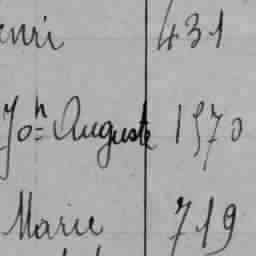 enri 431
Jon Auguste 1570
Marie 719